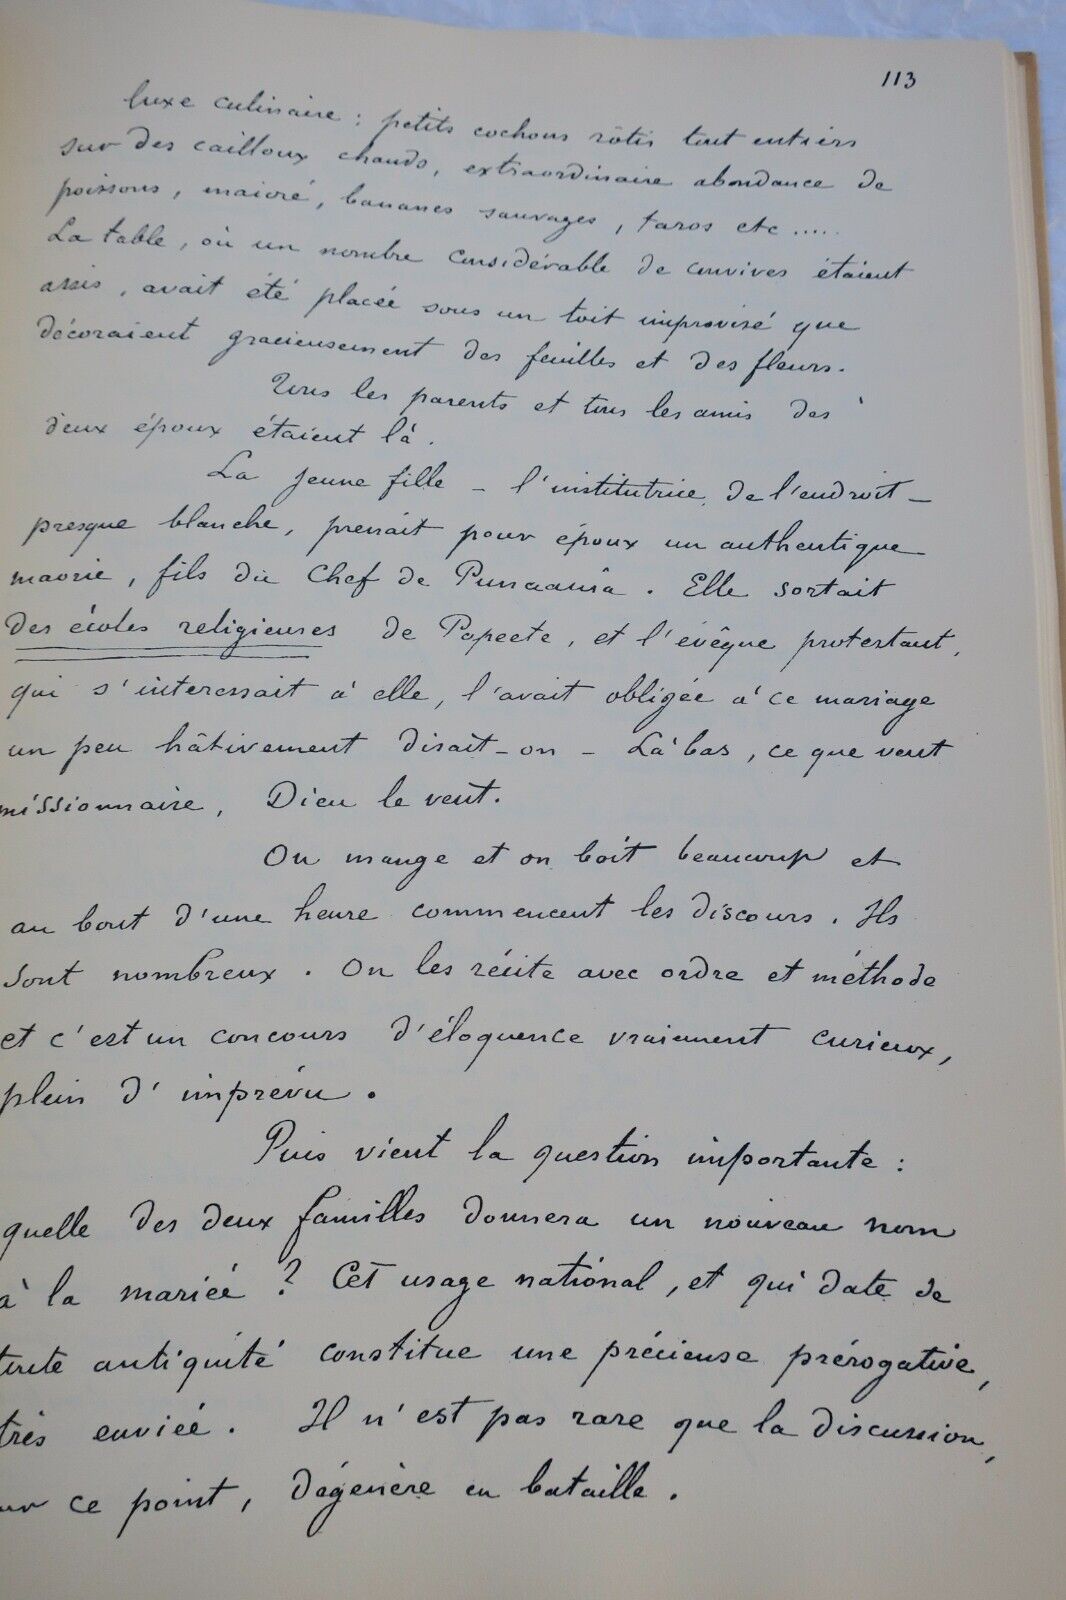 113
luxe culinaire : petits cochons rôtis tout entiers
sur des cailloux chauds, extraordinaire abondance de
poissons, maioré, bananes sauvages, taros etc .....
La table, où un nombre considérable de convives étaient
assis, avait été placée sous un toit improvisé que
décoraient gracieusement des feuilles et des fleurs.
Tous les parents et tous les amis des
deux époux étaient là.
La jeune fille - l'institutrice de l'endroit -
presque blanche, prenait pour époux un authentique
maorie, fils du Chef de Punaauïa. Elle sortait
des écoles religieuses de Papeete, et l'évêque protestant,
qui s'interessait à elle, l'avait obligée à ce mariage
un peu hâtivement disait-on - Là bas, ce que veut
missionnaire, Dieu le veut.
On mange et on boit beaucoup et
au bout d'une heure commencent les discours. Ils
sont nombreux. On les récite avec ordre et méthode
et c'est un concours d'éloquence vraiment curieux,
plein d'imprévu.
Puis vient la question importante :
quelle des deux familles donnera un nouveau nom
à la mariée ? Cet usage national, et qui date de
toute antiquité constitue une précieuse prérogative,
très enviée. Il n'est pas rare que la discussion,
ur ce point, dégénère en bataille.